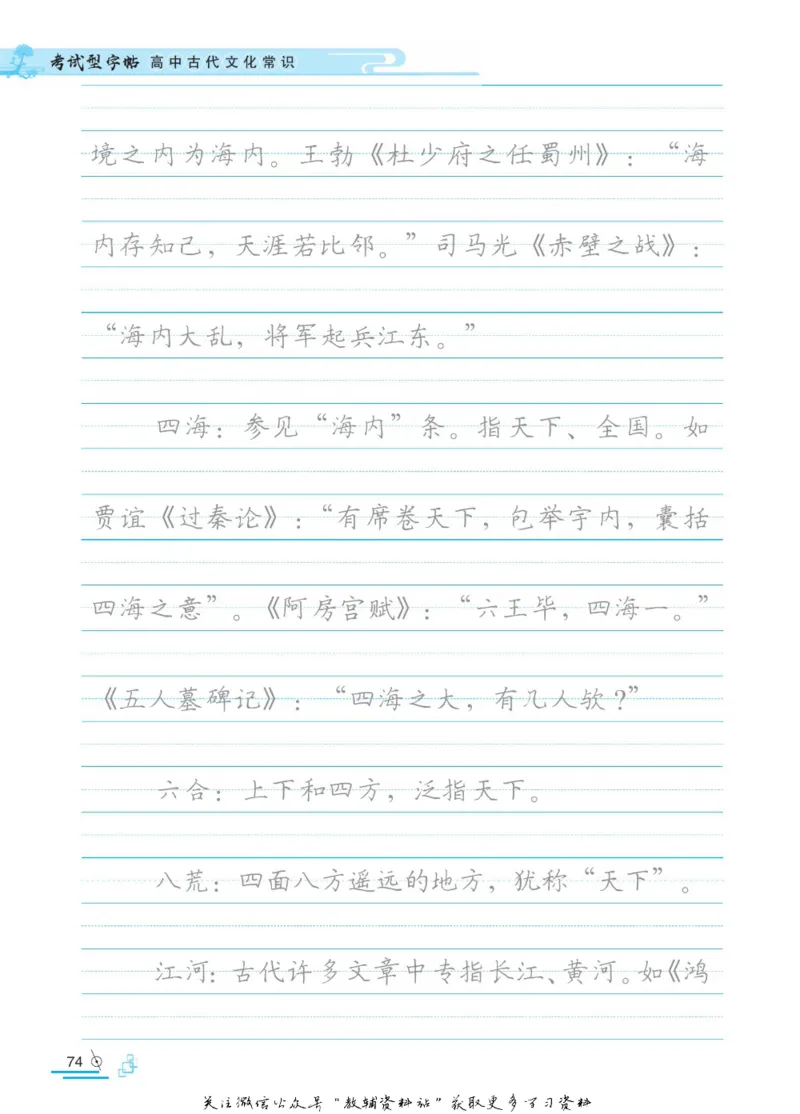 考试型字帖 高中古代文化常识
境之内为海内。王勃《杜少府之任蜀州》：“海
内存知己，天涯若比邻。”司马光《赤壁之战》：
“海内大乱，将军起兵江东。”
四海：参见“海内”条。指天下、全国。如
贾谊《过秦论》：“有席卷天下，包举宇内，囊括
四海之意”。《阿房宫赋》：“六王毕，四海一。”
《五人墓碑记》：“四海之大，有几人欤？”
六合：上下和四方，泛指天下。
八荒：四面八方遥远的地方，犹称“天下”。
江河：古代许多文章中专指长江、黄河。如《鸿
74
关注微信公众号“教辅资料站”获取更多学习资料